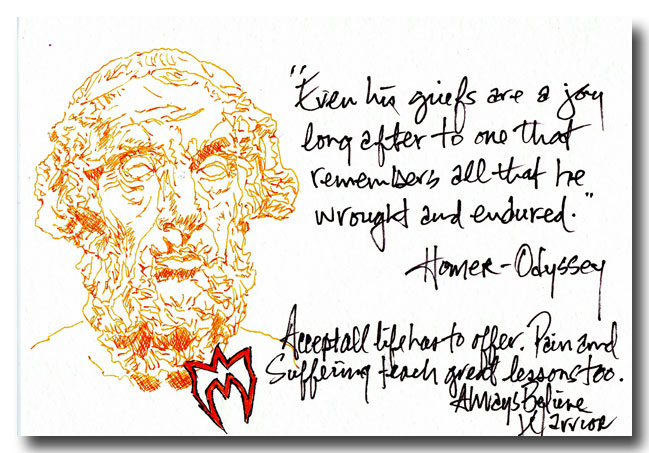 "Even his griefs are a joy
long after to one that
remembers all that he
wrought and endured."
Homer-Odyssey
Accept all life has to offer. Pain and
Suffering teach great lessons too.
Always Believe
Warrior